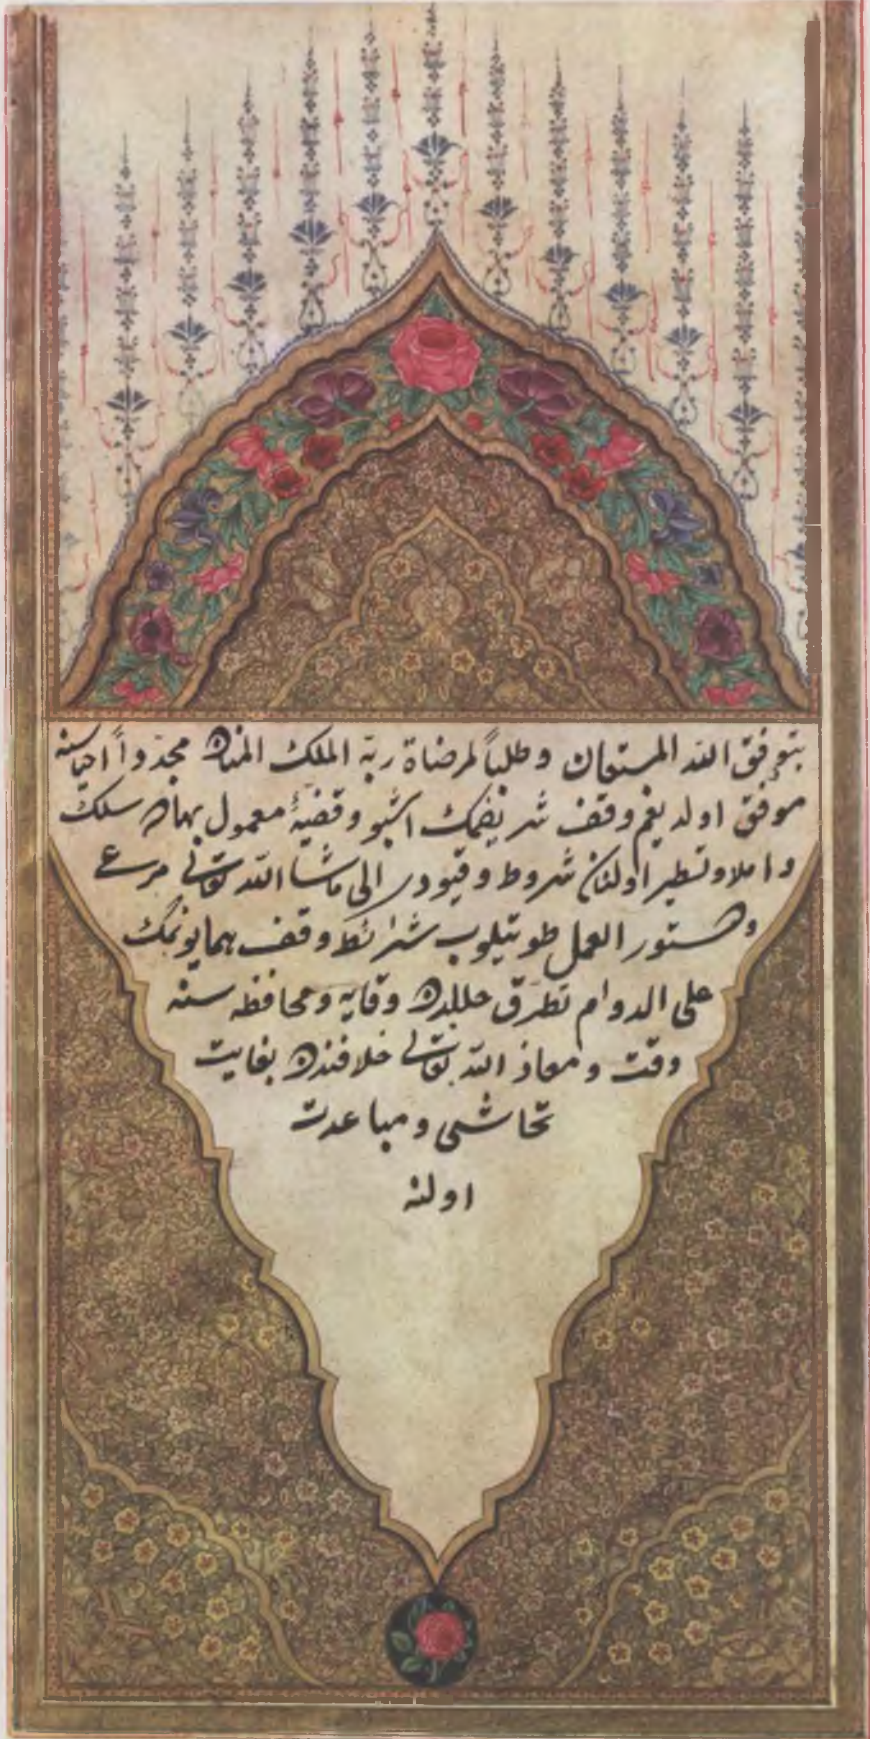 بتوفيق الله المستعان وطلباً لمرضاة ربّه الملك المنان مجدّداً احياسنه
موفق اولديغم وقف شريفمك اشبو وقفيۀ معمول بهاسن سلك
واملا وتسطير اولنان شروط وقيودى الى ماشا الله تعالى مرعى
ودستور العمل طوتيلوب شرائط وقف همايونمك
على الدوام تطرّق خللدن وقايه ومحافظه سنه
دقت ومعاذ الله تعالى خلافندن بغايت
تحاشى ومباعدت
اولنه